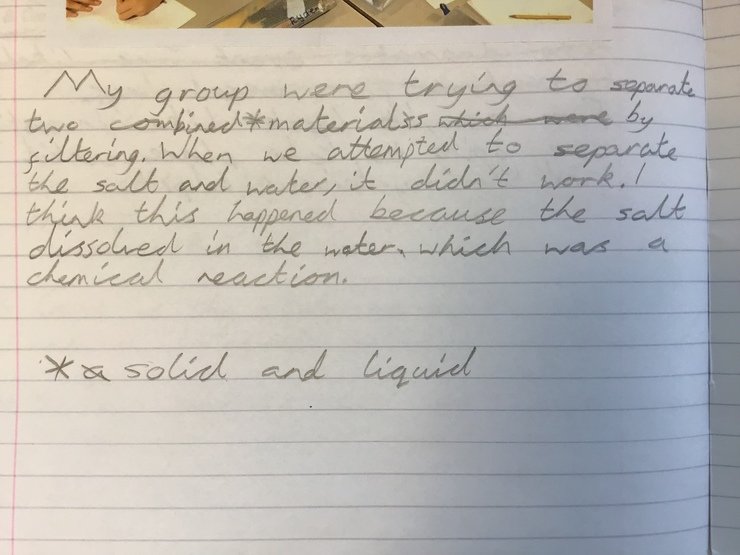 My group were trying to separate
two combined*materialss which were by
filtering. When we attempted to separate
the salt and water, it didn't work. I
think this happened because the salt
dissolved in the water, which was a
chemical reaction.
*a solid and liquid